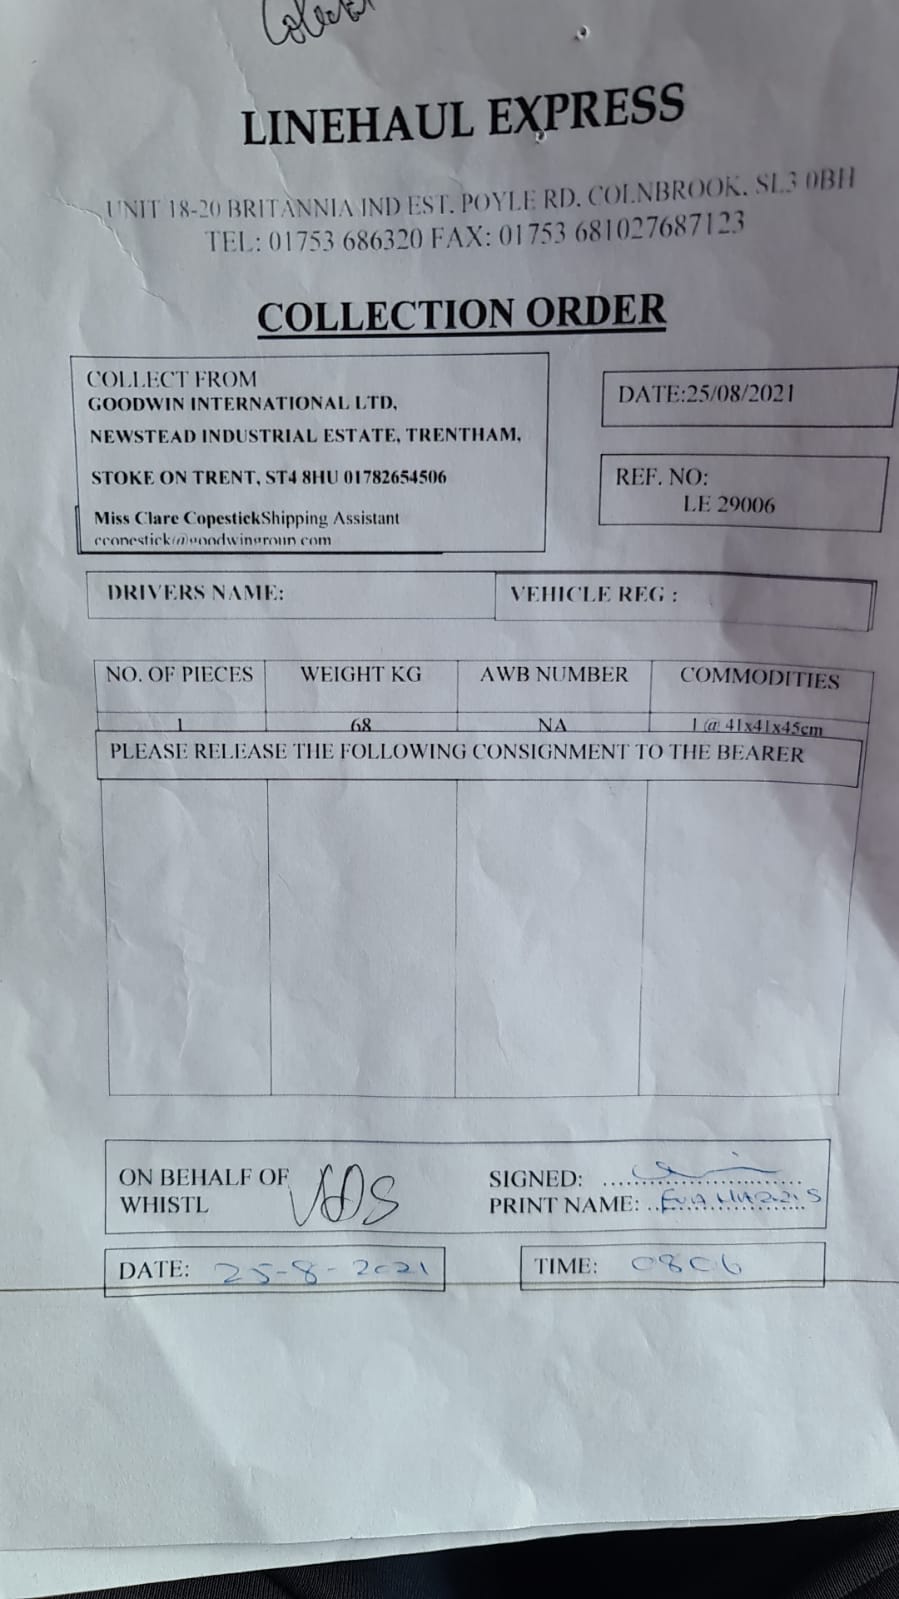 LINEHAUL EXPRESS
UNIT 18-20 BRITANNIA IND EST. POYLE RD. COLNBROOK. SL3 0BH
TEL: 01753 686320 FAX: 01753 681027687123
COLLECTION ORDER
COLLECT FROM
GOODWIN INTERNATIONAL LTD,
NEWSTEAD INDUSTRIAL ESTATE, TRENTHAM,
STOKE ON TRENT, ST4 8HU 01782654506
Miss Clare CopestickShipping Assistant
ccopestick@goodwingroup.com
DATE:25/08/2021
REF. NO:
LE 29006
DRIVERS NAME:
VEHICLE REG :
NO. OF PIECES WEIGHT KG AWB NUMBER COMMODITIES
1 68 NA 1 @ 41x41x45cm
PLEASE RELEASE THE FOLLOWING CONSIGNMENT TO THE BEARER
ON BEHALF OF
WHISTL
SIGNED:
PRINT NAME:
DATE: 25-8-2021
TIME: 0806